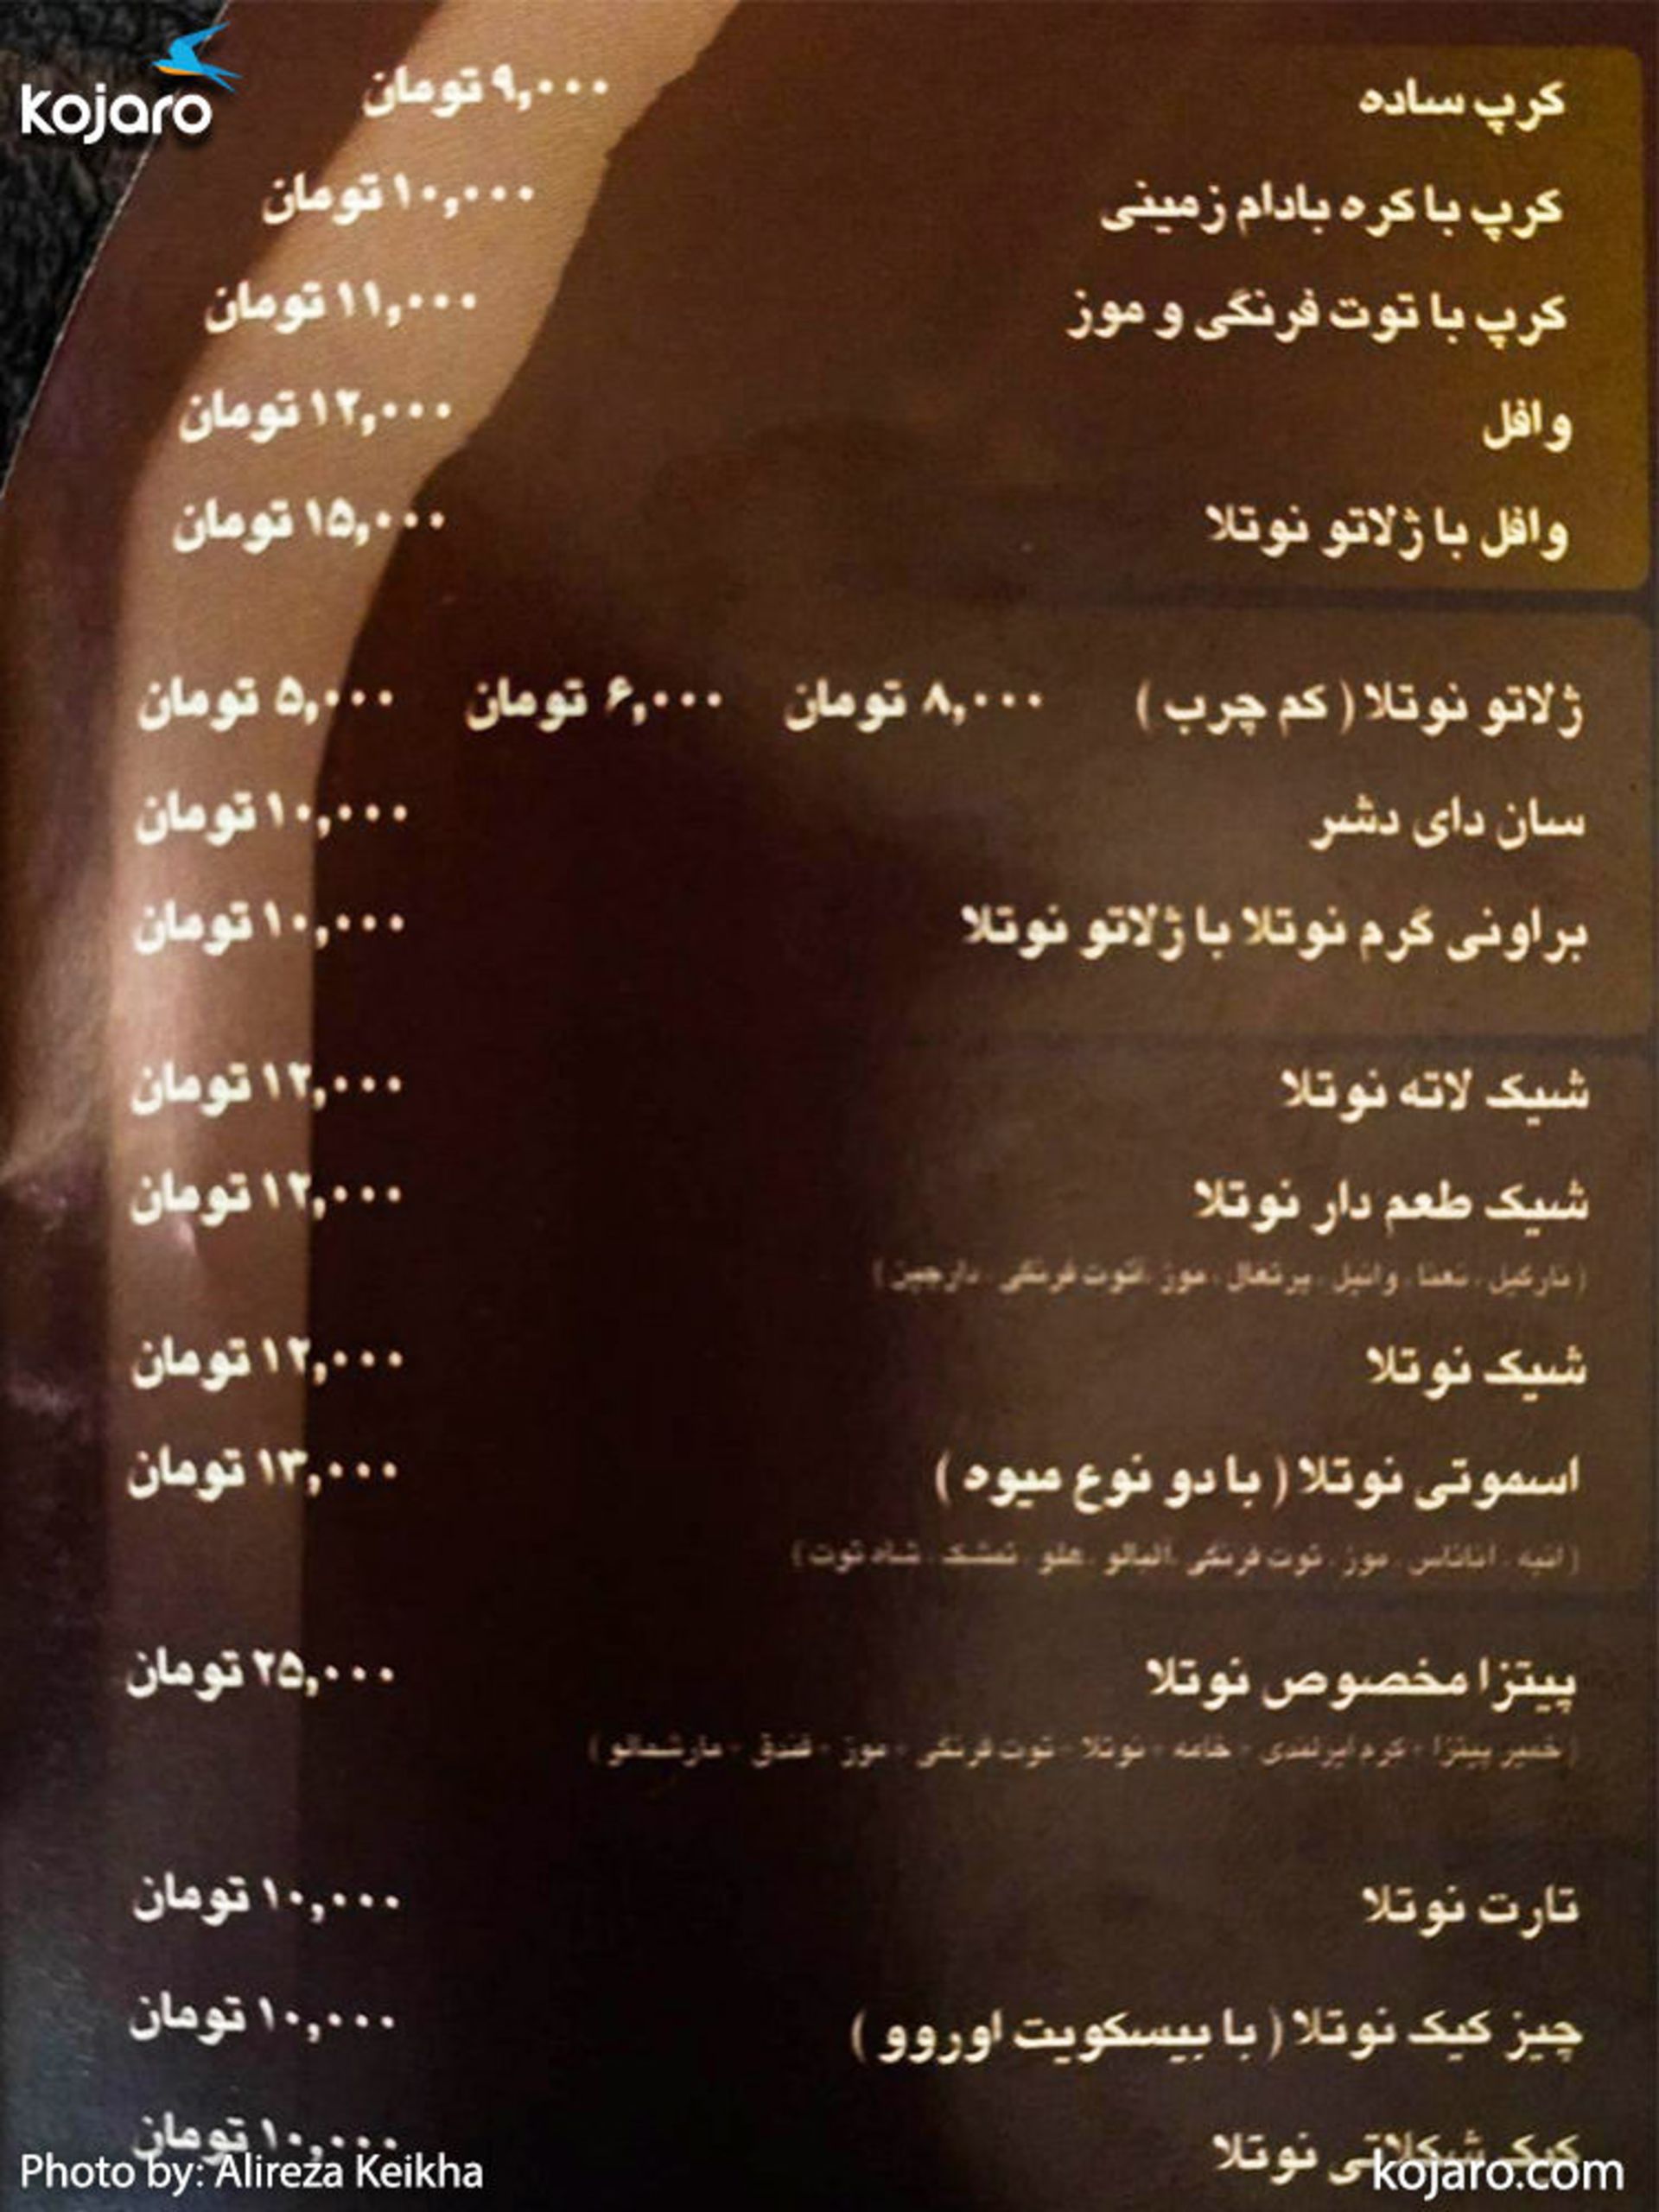 kojaro
کرپ ساده ۹,۰۰۰ تومان
کرپ با کره بادام زمینی ۱۰,۰۰۰ تومان
کرپ با توت فرنگی و موز ۱۱,۰۰۰ تومان
وافل ۱۲,۰۰۰ تومان
وافل با ژلاتو نوتلا ۱۵,۰۰۰ تومان
ژلاتو نوتلا ( کم چرب ) ۸,۰۰۰ تومان ۶,۰۰۰ تومان ۵,۰۰۰ تومان
سان دای دشر ۱۰,۰۰۰ تومان
براونی گرم نوتلا با ژلاتو نوتلا ۱۰,۰۰۰ تومان
شیک لاته نوتلا ۱۲,۰۰۰ تومان
شیک طعم دار نوتلا ۱۲,۰۰۰ تومان
( نارگیل . نعنا . وانیل . پرتغال . موز . توت فرنگی . دارچین )
شیک نوتلا ۱۲,۰۰۰ تومان
اسموتی نوتلا ( با دو نوع میوه ) ۱۳,۰۰۰ تومان
( انبه . اناناس . موز . توت فرنگی . البالو . هلو . تمشک . شاه توت )
پیتزا مخصوص نوتلا ۲۵,۰۰۰ تومان
( خمیر پیتزا - کرم ایرلندی - خامه - نوتلا - توت فرنگی - موز - فندق - مارشمالو )
تارت نوتلا ۱۰,۰۰۰ تومان
چیز کیک نوتلا ( با بیسکویت اوروو ) ۱۰,۰۰۰ تومان
کیک شکلاتی نوتلا ۱۰,۰۰۰ تومان
Photo by: Alireza Keikha kojaro.com